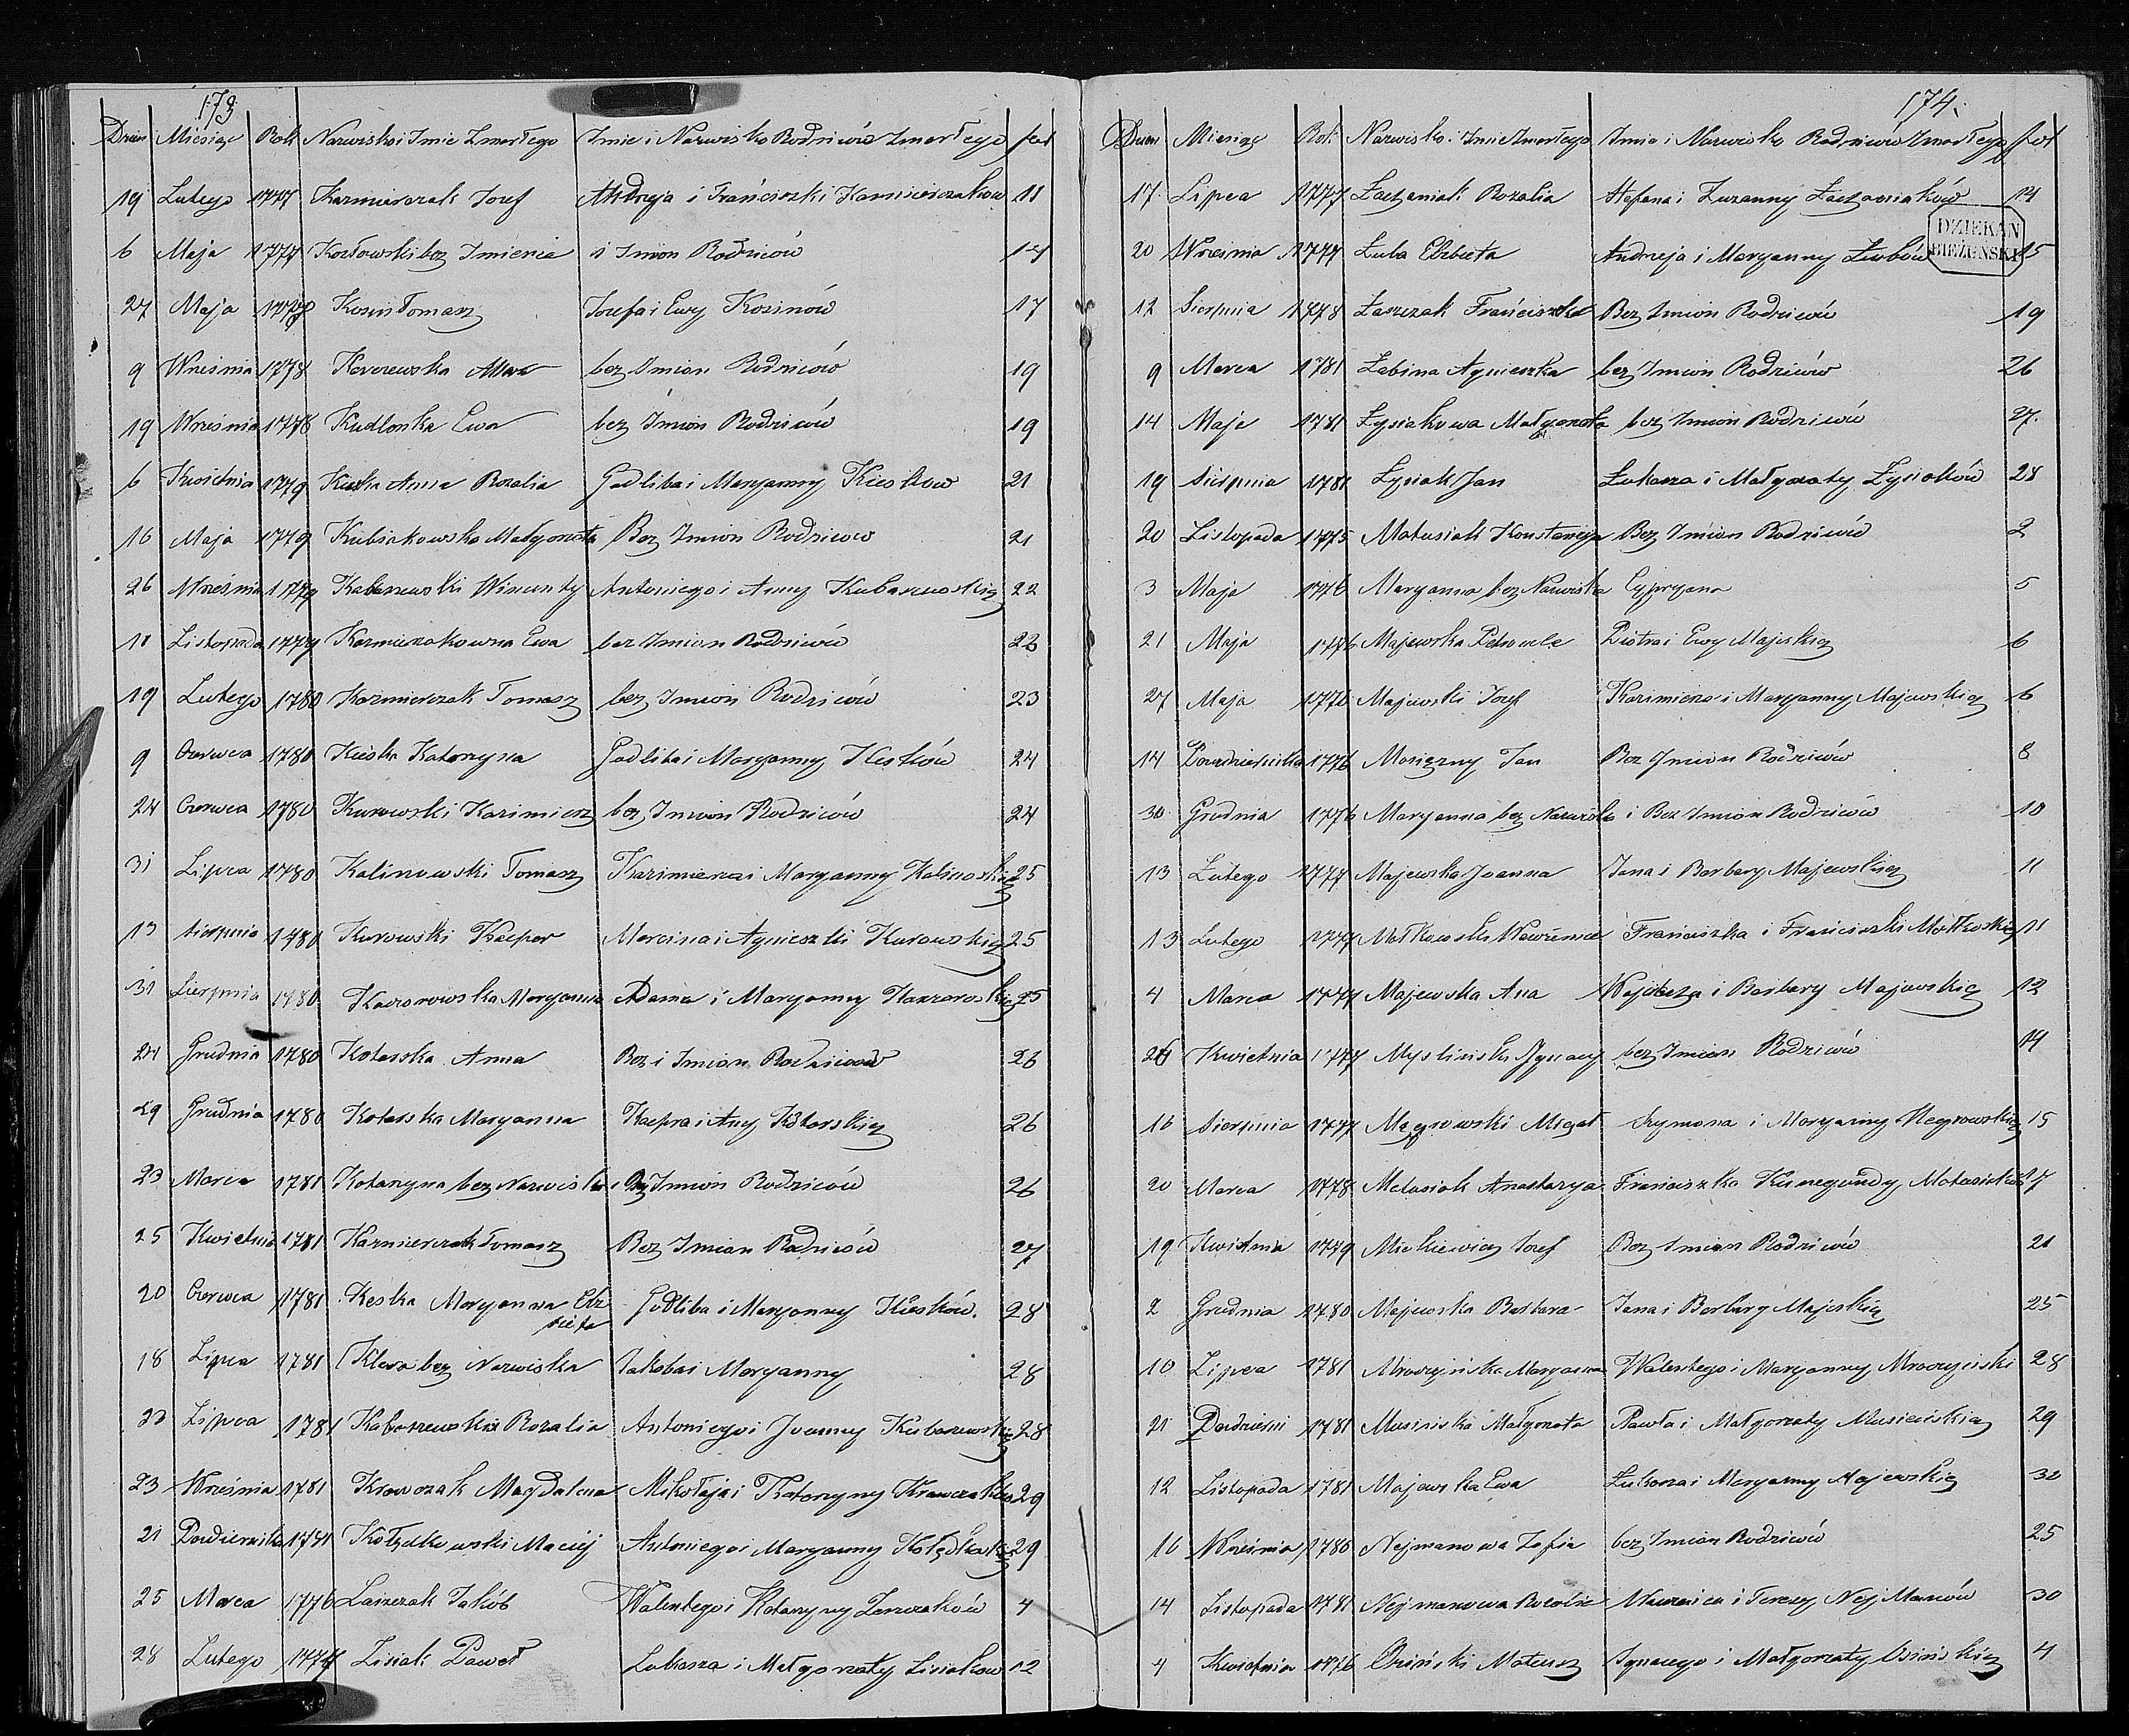 173
Dzien Miesiąc Rok Nazwisko i Imie Zmarłego Imie i Nazwisko Rodziców Zmarłego fol
19 Lutego 1777 Kazmierczak Jozef Andreja i Franciszki Kazmierczakow 11
6 Maja 1777 Kozłowski bez Imienia i Imion Rodziców 14
27 Maja 1778 Kosin Tomasz Jozefa i Ewy Kosinow 17
9 Wrzesnia 1778 bez Imion Rodziców 19
19 Wrzesnia 1778 Kudlonka Ewa bez Imion Rodziców 19
6 Kwietnia 1779 Kieska Anna Rozalia Godliba i Maryanny Kieskow 21
16 Maja 1779 Kubiakowska Małgorzata Bez Imion Rodzicow 21
26 Wrzesnia 1779 Kabaszewski Wincenty Antoniego i Anny Kubaszewskich 22
11 Listopada 1779 Kazmierzakowna Ewa bez Imion Rodziców 23
19 Lutego 1780 Kazmierczak Tomasz bez Imion Rodziców 23
9 Czerwca 1780 Kieska Katarzyna Godliba i Maryanny Kiesków 24
24 Czerwca 1780 Kurowski Kazimierz bez Imion Rodziców 24
31 Lipca 1780 Kalinowski Tomasz Kazimierza i Maryanny 25
13 Sierpnia 1780 Kurowski Kacper Marcina i Agnieszki Kurowskich 25
31 Sierpnia 1780 Kaczorowska Maryanna Adama i Maryanny 25
24 Grudnia 1780 Kotarska Anna Bez i Imion Rodziców 26
29 Grudnia 1780 Kotarska Maryanna Kacpra i Any Kotarskich 26
23 Marca 1781 Katarzyna bez Nazwiska i Imion Rodziców 26
25 Kwietnia 1781 Kazmierczak Tomasz Bez Imion Rodziców 27
20 Czerwca 1781 Keska Maryanna Elz Godliba i Maryanny Kiesków. 28
bieta
18 Lipca 1781 Klara bez Nazwiska Jakoba i Maryanny 28
23 Lipca 1781 Kabaszewska Rozalia Antoniego i Joanny Kubaszewskich 28
23 Wrzesnia 1781 Krawczak Magdalena Mikołaja i Katarzyny Krawczaków 29
21 Pazdziernika 1781 Kołędkowski Maciej Antoniego i Maryanny 29
25 Marca 1776 Laszczak Jakób Walentego i Katarzyny 4
28 Lutego 1777 Lisiak Paweł Lukasza i Małgorzaty Lisiakow 12
174.
Dzien Miesiąc Rok Nazwisko i Imie Zmarłego Imie i Nazwisko Rodziców Zmarłego fol
17 Lipca 1777 Łactaniak Rozalia Stefana i Zuzanny Łactaniaków 14
DZIEKAN
BIEŻUŃSKI
20 Wrzesnia 1777 Łuba Elzbieta Andreja i Maryanny Łubów 15
12 Sierpnia 1778 Łaszczak Franciszka Bez Imion Rodziców 19
9 Marca 1781 Łabina Agnieszka bez Imion Rodziców 26
14 Maja 1781 Łysiakowa Małgorzata bez Imion Rodziców 27.
19 Sierpnia 1781 Łysiak Jan Łukasza i Małgorzaty Łysiaków 28
20 Listopada 1775 Matusiak Konstancya Bez Imion Rodziców 2
3 Maja 1776 Maryanna bez Nazwiska Cypryana 5
21 Maja 1776 Majewska Petronela Piotra i Ewy Majskich 6
27 Maja 1776 Majewski Jozef Kazimierza i Maryanny Majewskich 6
14 Pazdziernika 1776 Jan Bez Imion Rodziców 8
30 Grudnia 1776 Maryanna bez Nazwiska i Bez Imion Rodziców 10
13 Lutego 1777 Majewska Joanna Jana i Barbary Majewskich 11
13 Lutego 1777 Franciszka i Franciszki 11
4 Marca 1777 Majewska Ana Wojciecha i Barbary Majewskich 12
26 Kwietnia 1777 Myslinski Ignacy bez Imion Rodziców 14
16 Sierpnia 1777 Szymona i Maryanny 15
20 Marca 1778 Matusiak Anastazya Franciszka Kunegundy Matusiaków 17
19 Kwietnia 1779 Mickiewicz Jozef Bez Imion Rodziców 21
2 Grudnia 1780 Majewska Barbara Jana i Barbary Majeskich 25
10 Lipca 1781 Mroczyńska Maryanna Walentego i Maryanny 28
21 1781 Musinska Małgorzata Pawła i Małgorzaty 29
12 Listopada 1781 Majewska Ewa Łukasza i Maryanny Majewskich 30
16 Wrzesnia 1780 Nejmanowa Zofia bez Imion Rodziców 25
14 Listopada 1781 Nejmanowa Rozalia i Teresy Nejmanów 30
4 Kwietnia 1776 Osiński Mateusz Ignacego i Małgorzaty Osińskich 4